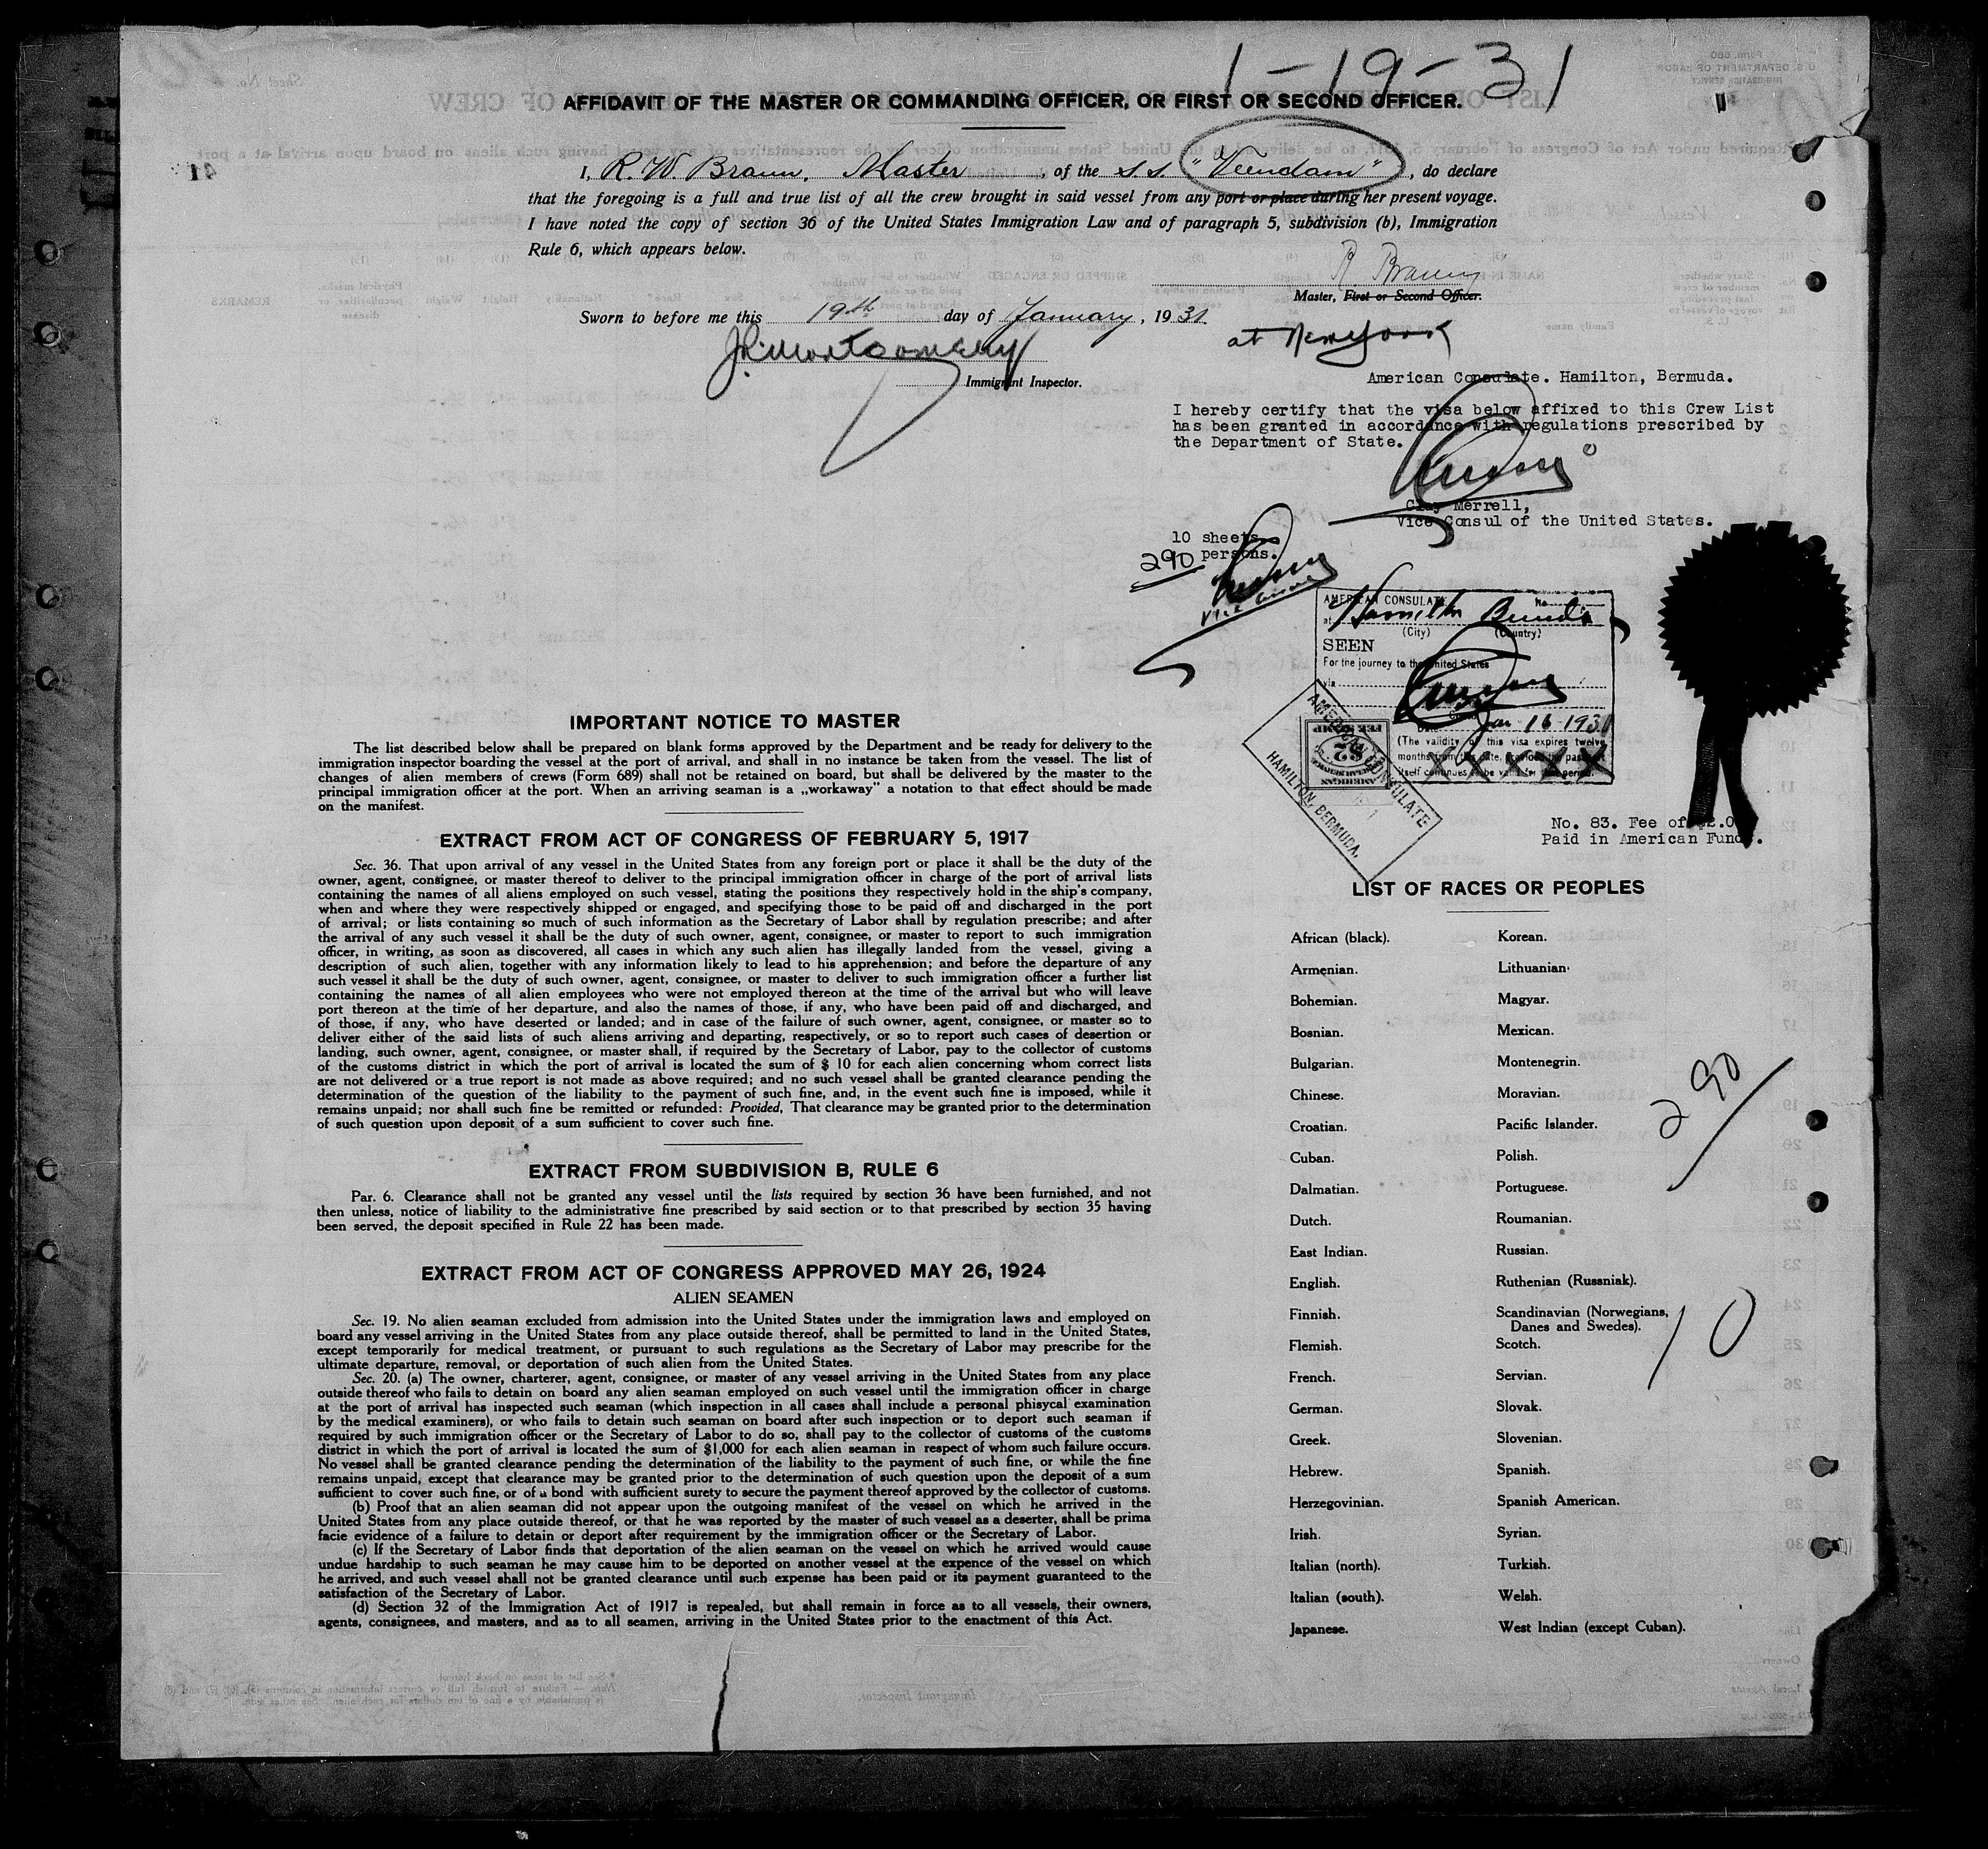 1-19-31
AFFIDAVIT OF THE MASTER OR COMMANDING OFFICER, OR FIRST OR SECOND OFFICER.
I, R. W. Braun, Master, of the s.s. "Veendam", do declare
that the foregoing is a full and true list of all the crew brought in said vessel from any port or place during her present voyage.
I have noted the copy of section 36 of the United States Immigration Law and of paragraph 5, subdivision (b), Immigration
Rule 6, which appears below.
R Braun
Master, First or Second Officer.
Sworn to before me this 19th day of January, 1931.
at New York
Immigrant Inspector.
American Consulate. Hamilton, Bermuda.
I hereby certify that the visa below affixed to this Crew List
has been granted in accordance with regulations prescribed by
the Department of State.
Clay Merrell,
Vice Consul of the United States.
10 sheets
290 persons.
Vice Consul
AMERICAN CONSULATE No.
at Hamilton Bermuda
(City) (Country)
SEEN
For the journey to the United States
via
Date Jan 16 1931
(The validity of this visa expires twelve
months from this date, provided the passport
itself continues to be valid for that period.
AMERICAN CONSULATE
HAMILTON, BERMUDA.
No. 83. Fee of $2.0
Paid in American Funds.
IMPORTANT NOTICE TO MASTER
The list described below shall be prepared on blank forms approved by the Department and be ready for delivery to the
immigration inspector boarding the vessel at the port of arrival, and shall in no instance be taken from the vessel. The list of
changes of alien members of crews (Form 689) shall not be retained on board, but shall be delivered by the master to the
principal immigration officer at the port. When an arriving seaman is a „workaway" a notation to that effect should be made
on the manifest.
EXTRACT FROM ACT OF CONGRESS OF FEBRUARY 5, 1917
Sec. 36. That upon arrival of any vessel in the United States from any foreign port or place it shall be the duty of the
owner, agent, consignee, or master thereof to deliver to the principal immigration officer in charge of the port of arrival lists
containing the names of all aliens employed on such vessel, stating the positions they respectively hold in the ship's company,
when and where they were respectively shipped or engaged, and specifying those to be paid off and discharged in the port
of arrival; or lists containing so much of such information as the Secretary of Labor shall by regulation prescribe; and after
the arrival of any such vessel it shall be the duty of such owner, agent, consignee, or master to report to such immigration
officer, in writing, as soon as discovered, all cases in which any such alien has illegally landed from the vessel, giving a
description of such alien, together with any information likely to lead to his apprehension; and before the departure of any
such vessel it shall be the duty of such owner, agent, consignee, or master to deliver to such immigration officer a further list
containing the names of all alien employees who were not employed thereon at the time of the arrival but who will leave
port thereon at the time of her departure, and also the names of those, if any, who have been paid off and discharged, and
of those, if any, who have deserted or landed; and in case of the failure of such owner, agent, consignee, or master so to
deliver either of the said lists of such aliens arriving and departing, respectively, or so to report such cases of desertion or
landing, such owner, agent, consignee, or master shall, if required by the Secretary of Labor, pay to the collector of customs
of the customs district in which the port of arrival is located the sum of $ 10 for each alien concerning whom correct lists
are not delivered or a true report is not made as above required; and no such vessel shall be granted clearance pending the
determination of the question of the liability to the payment of such fine, and, in the event such fine is imposed, while it
remains unpaid; nor shall such fine be remitted or refunded: Provided, That clearance may be granted prior to the determination
of such question upon deposit of a sum sufficient to cover such fine.
EXTRACT FROM SUBDIVISION B, RULE 6
Par. 6. Clearance shall not be granted any vessel until the lists required by section 36 have been furnished, and not
then unless, notice of liability to the administrative fine prescribed by said section or to that prescribed by section 35 having
been served, the deposit specified in Rule 22 has been made.
EXTRACT FROM ACT OF CONGRESS APPROVED MAY 26, 1924
ALIEN SEAMEN
Sec. 19. No alien seaman excluded from admission into the United States under the immigration laws and employed on
board any vessel arriving in the United States from any place outside thereof, shall be permitted to land in the United States,
except temporarily for medical treatment, or pursuant to such regulations as the Secretary of Labor may prescribe for the
ultimate departure, removal, or deportation of such alien from the United States.
Sec. 20. (a) The owner, charterer, agent, consignee, or master of any vessel arriving in the United States from any place
outside thereof who fails to detain on board any alien seaman employed on such vessel until the immigration officer in charge
at the port of arrival has inspected such seaman (which inspection in all cases shall include a personal phisycal examination
by the medical examiners), or who fails to detain such seaman on board after such inspection or to deport such seaman if
required by such immigration officer or the Secretary of Labor to do so, shall pay to the collector of customs of the customs
district in which the port of arrival is located the sum of $1,000 for each alien seaman in respect of whom such failure occurs.
No vessel shall be granted clearance pending the determination of the liability to the payment of such fine, or while the fine
remains unpaid, except that clearance may be granted prior to the determination of such question upon the deposit of a sum
sufficient to cover such fine, or of a bond with sufficient surety to secure the payment thereof approved by the collector of customs.
(b) Proof that an alien seaman did not appear upon the outgoing manifest of the vessel on which he arrived in the
United States from any place outside thereof, or that he was reported by the master of such vessel as a deserter, shall be prima
facie evidence of a failure to detain or deport after requirement by the immigration officer or the Secretary of Labor.
(c) If the Secretary of Labor finds that deportation of the alien seaman on the vessel on which he arrived would cause
undue hardship to such seaman he may cause him to be deported on another vessel at the expence of the vessel on which
he arrived, and such vessel shall not be granted clearance until such expense has been paid or its payment guaranteed to the
satisfaction of the Secretary of Labor.
(d) Section 32 of the Immigration Act of 1917 is repealed, but shall remain in force as to all vessels, their owners,
agents, consignees, and masters, and as to all seamen, arriving in the United States prior to the enactment of this Act.
LIST OF RACES OR PEOPLES
African (black).
Armenian.
Bohemian.
Bosnian.
Bulgarian.
Chinese.
Croatian.
Cuban.
Dalmatian.
Dutch.
East Indian.
English.
Finnish.
Flemish.
French.
German.
Greek.
Hebrew.
Herzegovinian.
Irish.
Italian (north).
Italian (south).
Japanese.
Korean.
Lithuanian.
Magyar.
Mexican.
Montenegrin.
Moravian.
Pacific Islander.
Polish.
Portuguese.
Roumanian.
Russian.
Ruthenian (Russniak).
Scandinavian (Norwegians,
Danes and Swedes).
Scotch.
Servian.
Slovak.
Slovenian.
Spanish.
Spanish American.
Syrian.
Turkish.
Welsh.
West Indian (except Cuban).
290
10